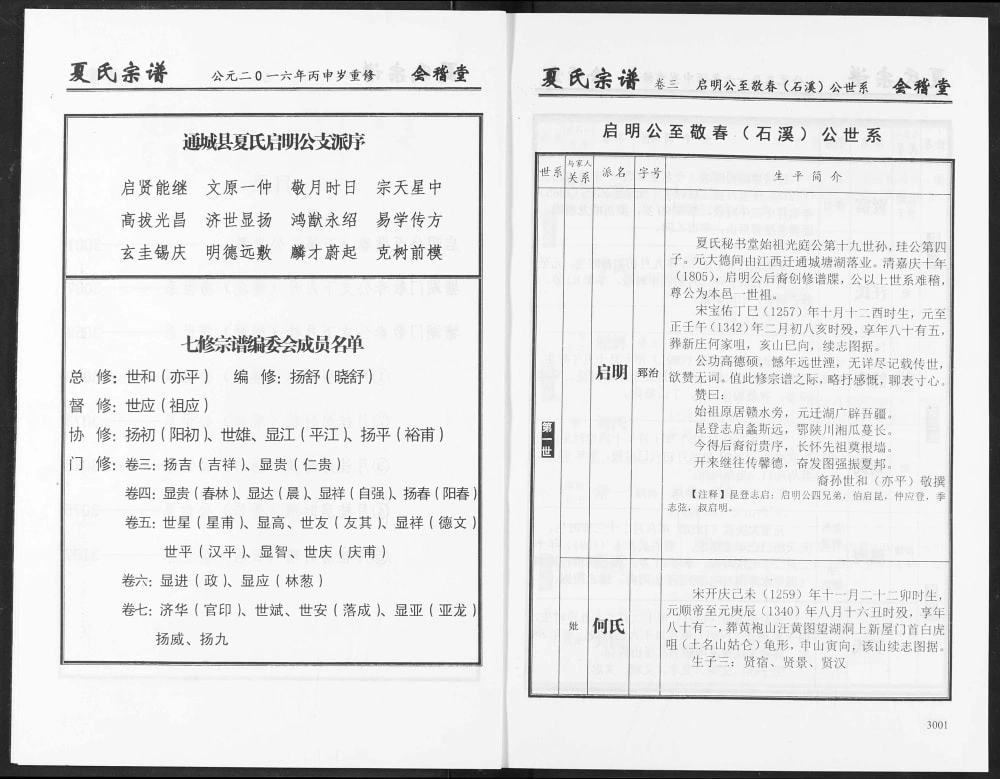 夏氏宗谱 公元二0一六年丙申岁重修 会稽堂
通城县夏氏启明公支派序
启贤能继 文原一仲 敬月时日 宗天星中
高拔光昌 济世显扬 鸿猷永绍 易学传方
玄圭锡庆 明德远敷 麟才蔚起 克树前模
七修宗谱编委会成员名单
总 修：世和（亦平） 编 修：扬舒（晓舒）
督 修：世应（祖应）
协 修：扬初（阳初）、世雄、显江（平江）、扬平（裕甫）
门 修：卷三：扬吉（吉祥）、显贵（仁贵）
卷四：显贵（春林）、显达（晨）、显祥（自强）、扬春（阳春）
卷五：世星（星甫）、显高、世友（友其）、显祥（德文）
世平（汉平）、显智、世庆（庆甫）
卷六：显进（政）、显应（林葱）
卷七：济华（官印）、世斌、世安（落成）、显亚（亚龙）
扬威、扬九
夏氏宗谱 卷三 启明公至敬春（石溪）公世系 会稽堂
启明公至敬春（石溪）公世系
世系 与家人关系 派名 字号 生平简介
第一世
启明 郅治
夏氏秘书堂始祖光庭公第十九世孙，珪公第四
子。元大德间由江西迁通城塘湖落业。清嘉庆十年
（1805），启明公后裔创修谱牒，公以上世系难稽，
尊公为本邑一世祖。
宋宝佑丁巳（1257）年十月十二酉时生，元至
正壬午（1342）年二月初八亥时殁，享年八十有五，
葬新庄何家咀，亥山巳向，续志图据。
公功高德硕，憾年远世湮，无详尽记载传世，
欲赞无词。值此修宗谱之际，略抒感慨，聊表寸心。
赞曰：
始祖原居赣水旁，元迁湖广辟吾疆。
昆登志启螽斯远，鄂陕川湘瓜蔓长。
今得后裔衍贵序，长怀先祖莫根墙。
开来继往传馨德，奋发图强振夏邦。
裔孙世和（亦平）敬撰
【注释】昆登志启：启明公四兄弟，伯启昆，仲应登，季
志弦，叔启明。
妣 何氏
宋开庆己未（1259）年十一月二十二卯时生，
元顺帝至元庚辰（1340）年八月十六丑时殁，享年
八十有一，葬黄袍山汪黄图望湖洞上新屋门首白虎
咀（土名山姑仑）龟形，申山寅向，该山续志图据。
生子三：贤宿、贤景、贤汉
3001